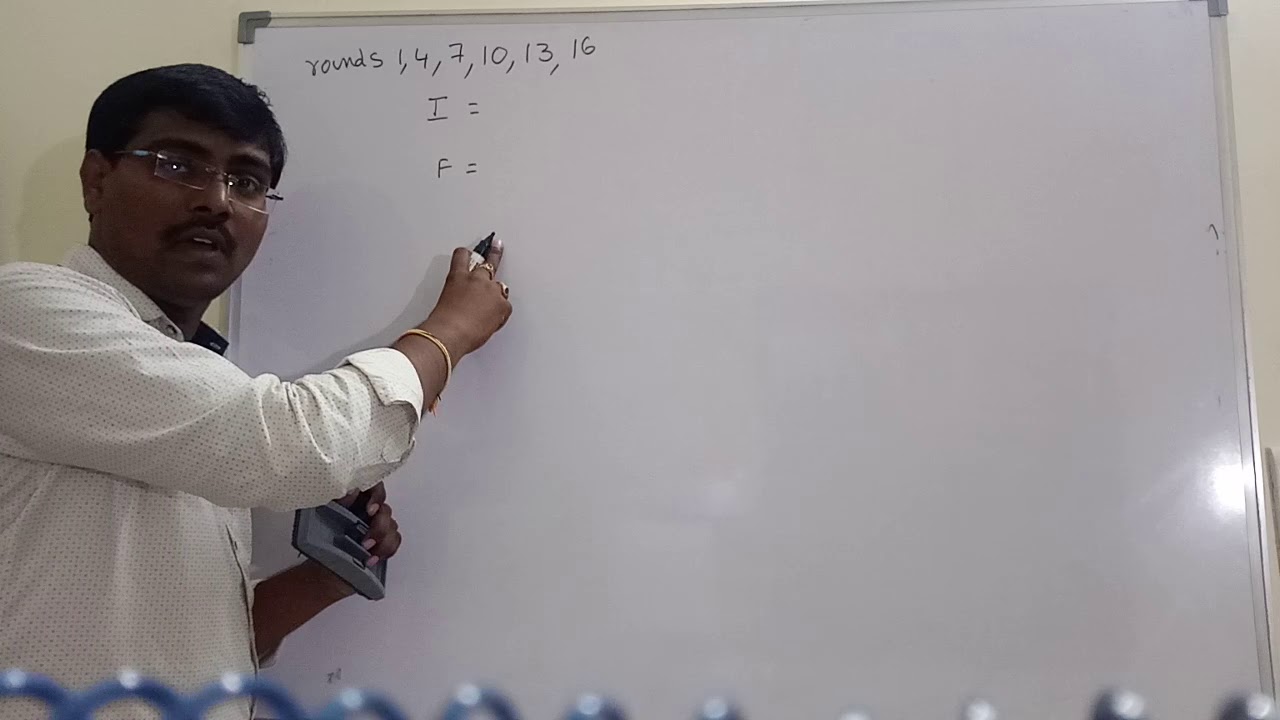 rounds 1, 4, 7, 10, 13, 16
I =
F =